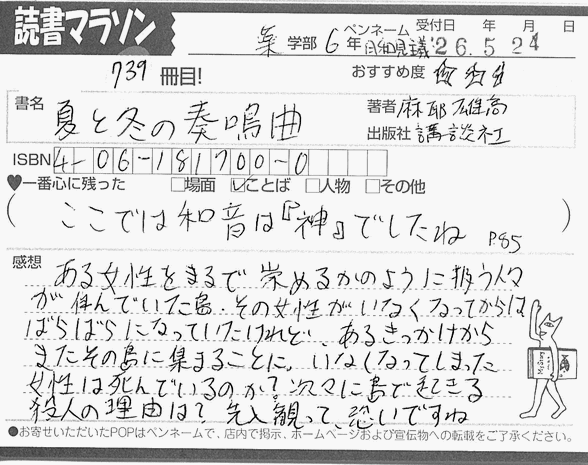 読書マラソン
薬 学部 6年 ペンネーム 日和見主義 受付日 年 月 日
26.5.24
739 冊目! おすすめ度 ☆☆☆
書名 夏と冬の奏鳴曲
著者 麻耶雄嵩
出版社 講談社
ISBN 4-06-181700-0
♥一番心に残った □場面 ☑ことば □人物 □その他
(ここでは和音は『神』でしたね P.85)
感想
ある女性をまるで崇めるかのように扱う人々
が住んでいた島、その女性がいなくなってからは
ばらばらになっていたけれど、あるきっかけから
またその島に集まることに。いなくなってしまった
女性は死んでいるのか?次々に島で起きる
殺人の理由は?先入観って、恐いですね
●お寄せいただいたPOPはペンネームで、店内で掲示、ホームページおよび宣伝物への転載をご了承ください。